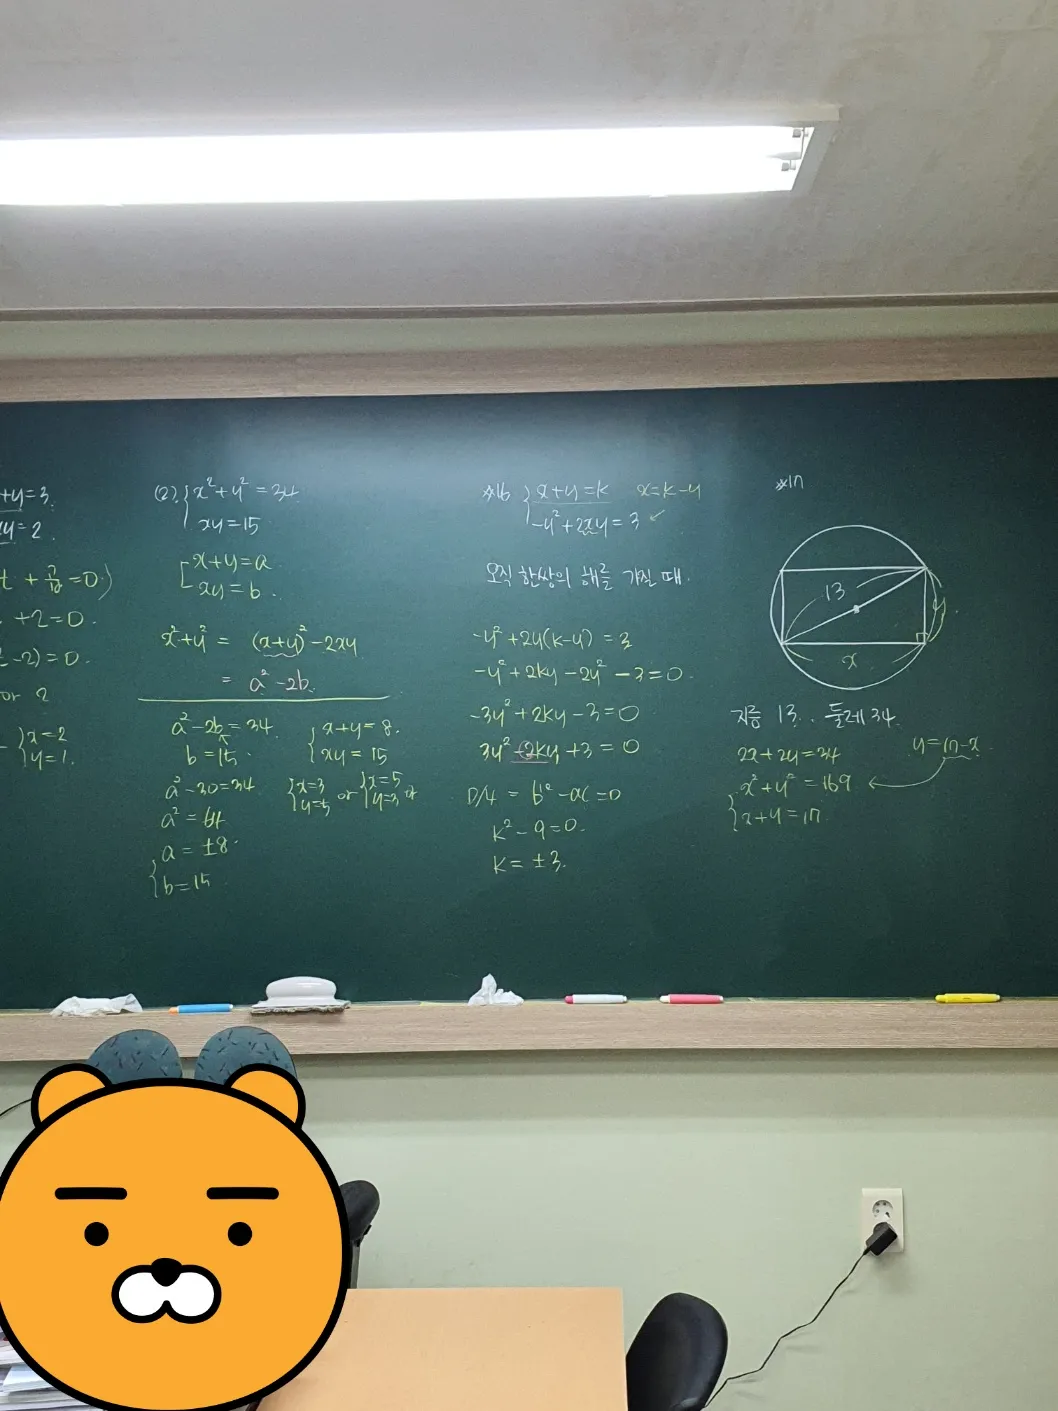 +y=3.
xy=2.
t + 2/12 =0)
+2=0.
-2)=0.
or 2
{x=2
y=1.
(2) {x²+y²=34
xy=15
[x+y=a
xy=b.
x²+y² = (x+y)²-2xy
= a²-2b.
a²-2b=34.
b=15.
a²-30=34
a²=64
a=±8.
{b=15
{x+y=8.
xy=15
{x=3
y=5 or {x=5
y=3
#16 {x+y=k x=k-y
-y²+2xy=3 ✓
오직 한쌍의 해를 가질 때.
-y²+2y(k-y)=3
-y²+2ky-2y²-3=0.
-3y²+2ky-3=0
3y²-2ky+3=0
D/4 = b'²-ac=0
k²-9=0.
k=±3.
#17
13
y.
x
지름 13.. 둘레34.
2x+2y=34
y=17-x
{x²+y²=169
x+y=17.